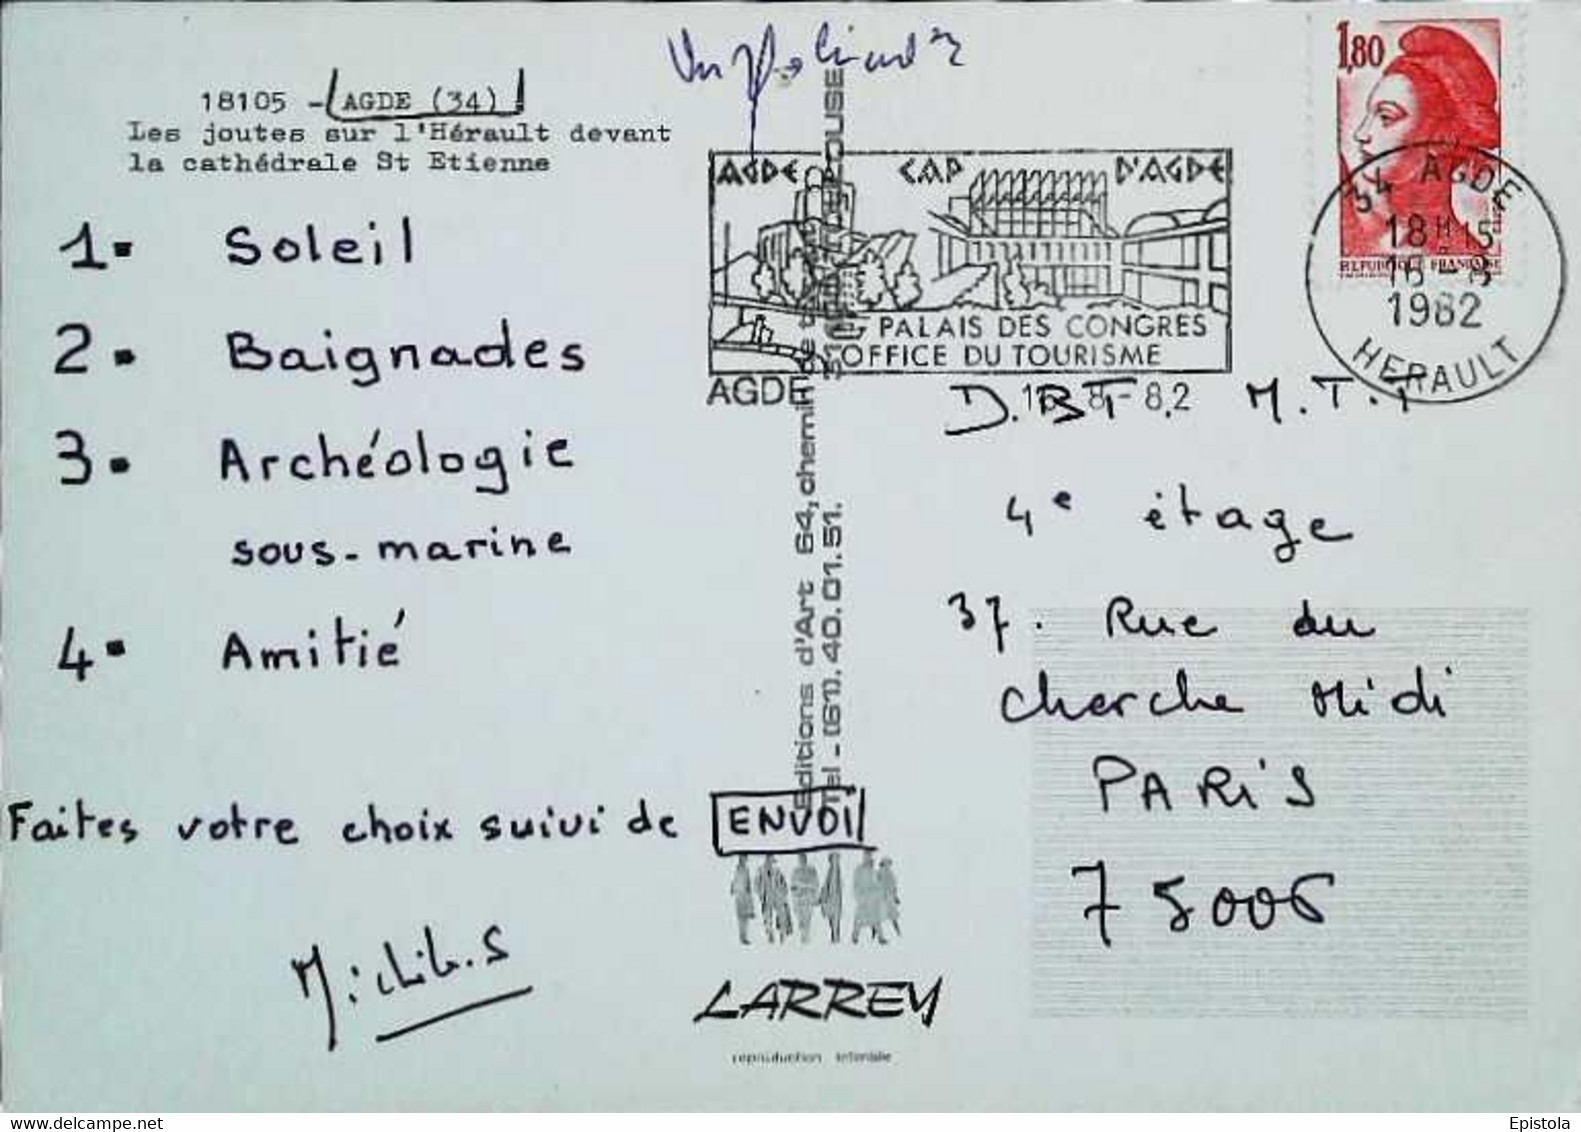 18105 - AGDE (34)
Les joutes sur l'Hérault devant
la cathédrale St Etienne
1. Soleil
2. Baignades
3. Archéologie
sous-marine
4. Amitié
Faites votre choix suivi de ENVOI
1,80
REPUBLIQUE FRANÇAISE
34 AGDE
18H15
16-8
1982
HERAULT
AGDE CAP D'AGDE
PALAIS DES CONGRES
OFFICE DU TOURISME
AGDE 16-8-82
Editions d'Art 64, chemin de
Tel - (61). 40.01.51.
D.BT. M.T.T
4e étage
37. Rue du
cherche Midi
PARIS
75006
LARREY
reproduction interdite
Epistola
www.delcampe.net